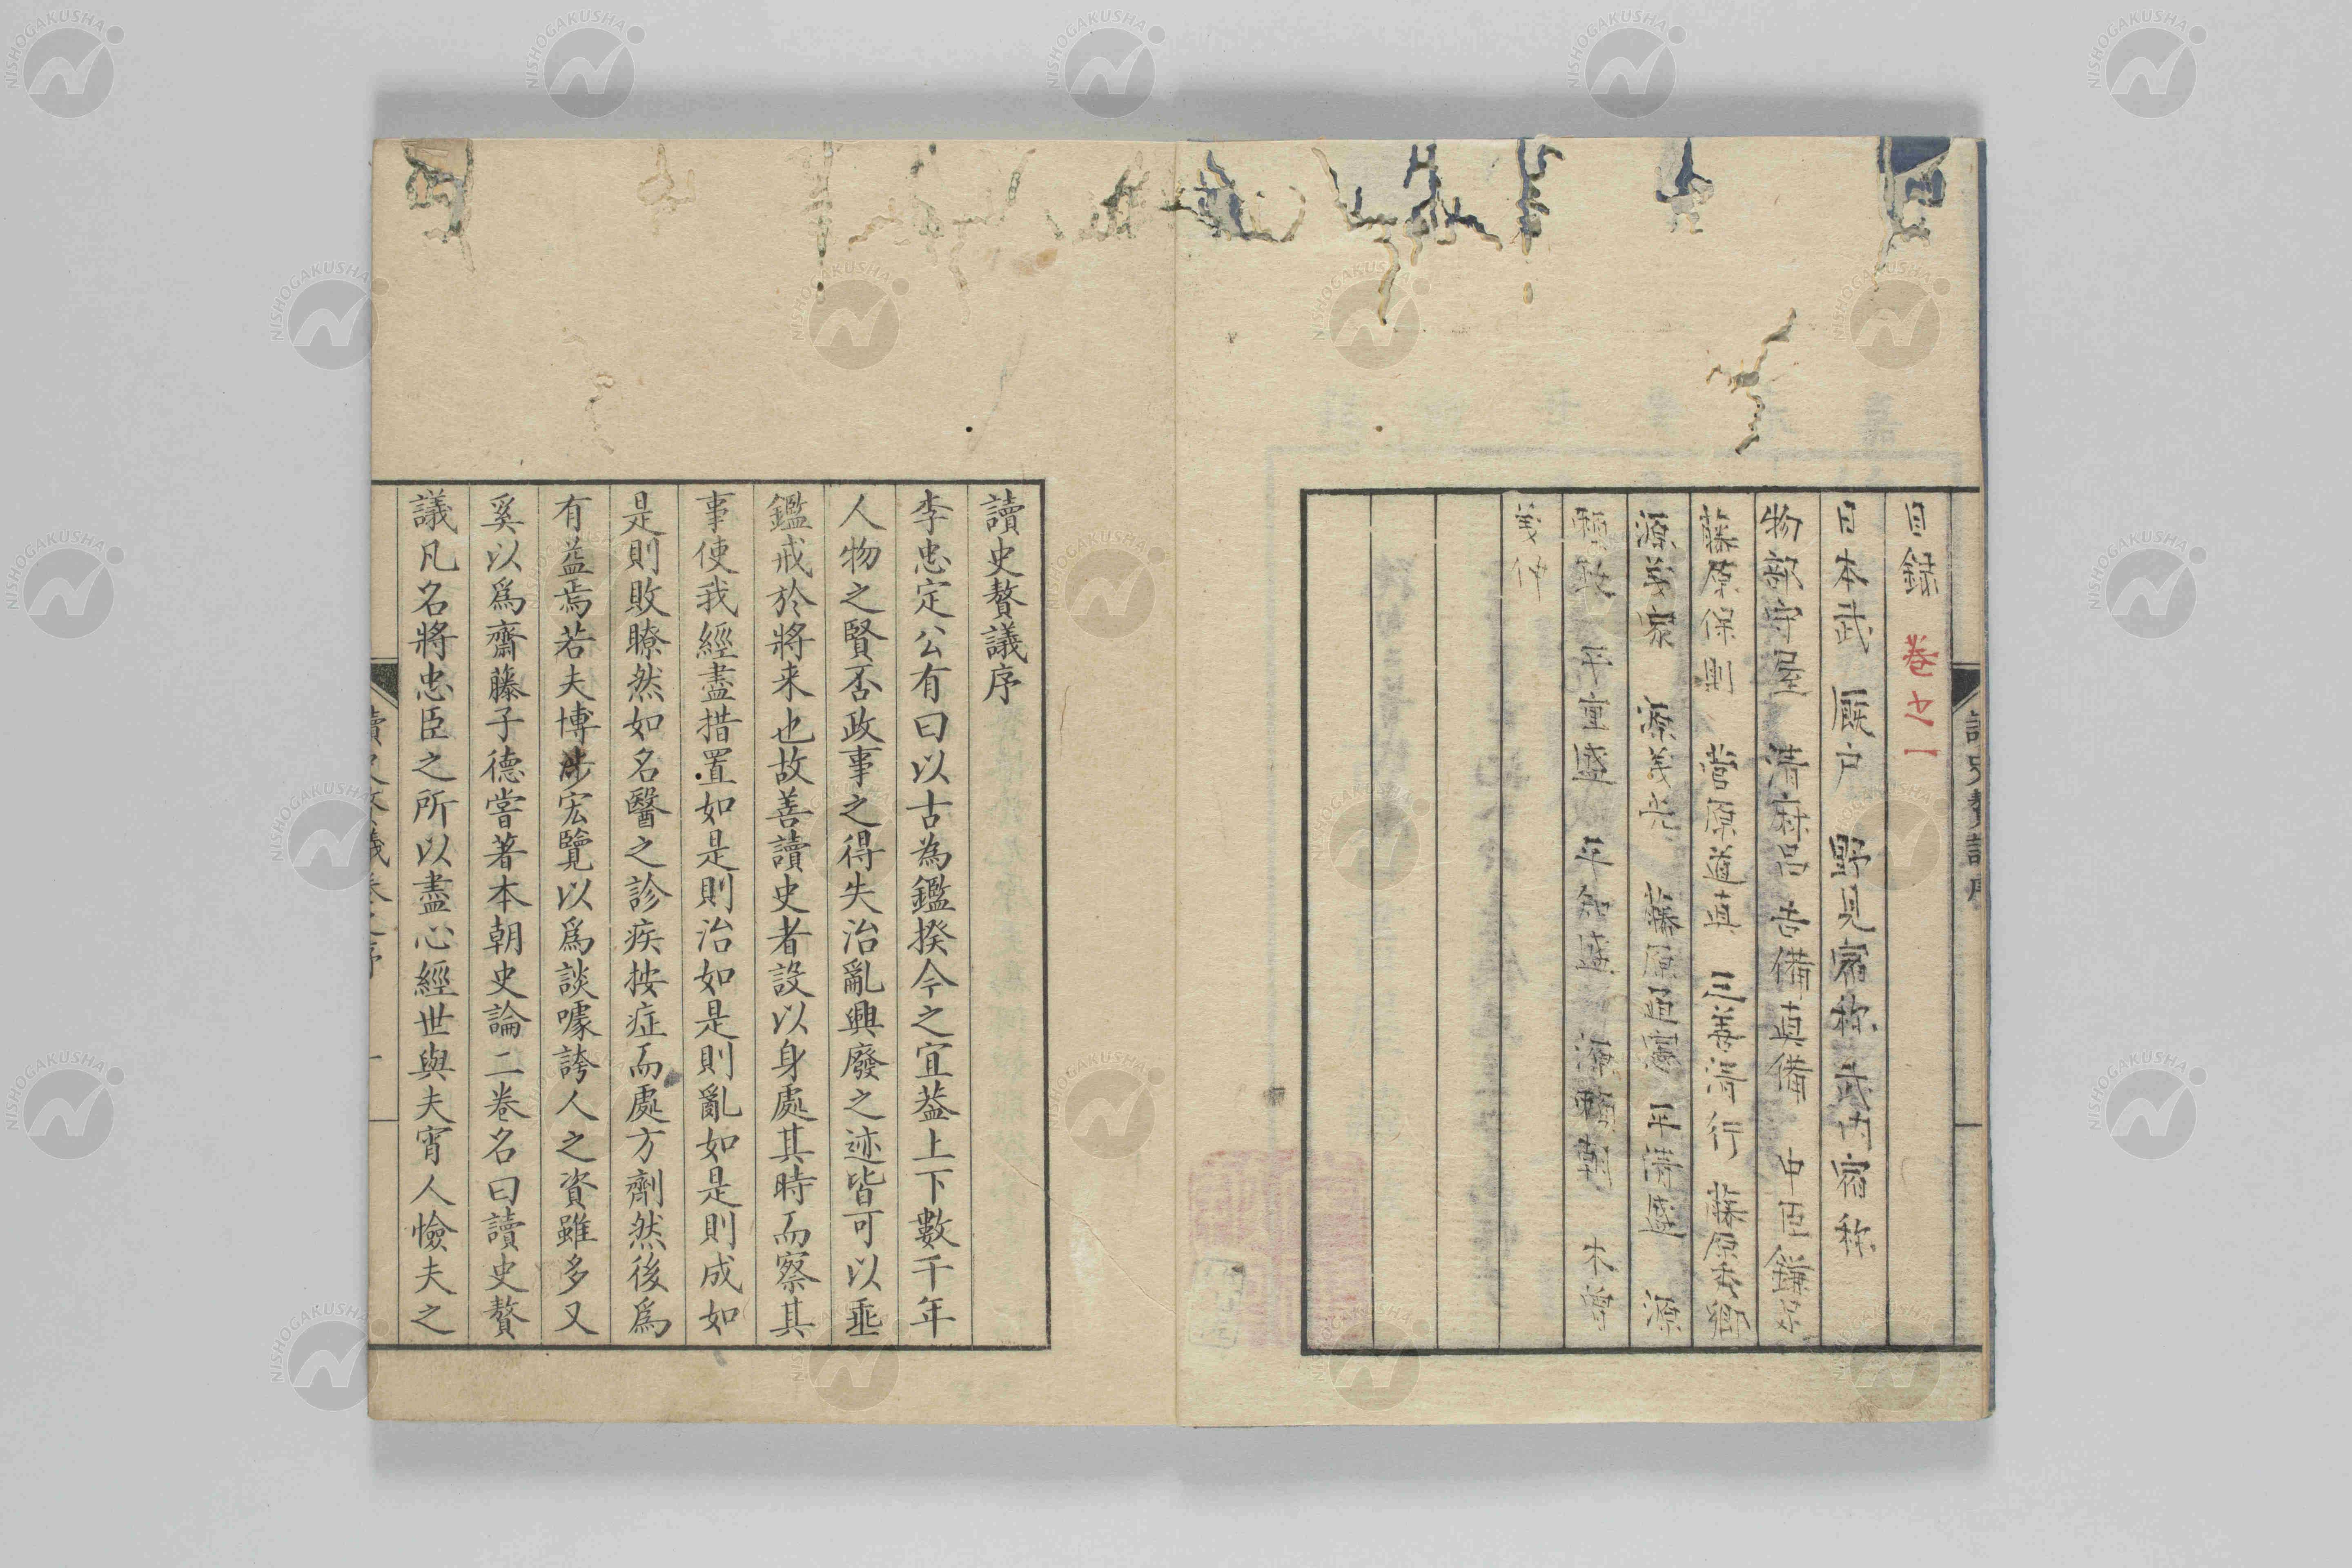 目録 巻之一
日本武 厩戸 野見宿称 武内宿称
物部守屋 清麻呂 吉備真備 中臣鎌子
藤原保則 菅原道真 三善清行 藤原秀郷
源義家 源義光 藤原通憲 平清盛 源
頼政 平重盛 平知盛 源頼朝 木曽
義仲
讀史贅議序
李忠定公有曰以古為鑑揆今之宜葢上下數千年
人物之賢否政事之得失治亂興廢之迹皆可以垂
鑑戒於將来也故善讀史者設以身處其時而察其
事使我經畫措置如是則治如是則亂如是則成如
是則敗瞭然如名醫之診疾按症而處方劑然後爲
有益焉若夫博涉宏覽以爲談噱誇人之資雖多又
奚以爲齋藤子德嘗著本朝史論二巻名曰讀史贅
議凡名將忠臣之所以盡心經世與夫宵人憸夫之
NISHOGAKUSHA